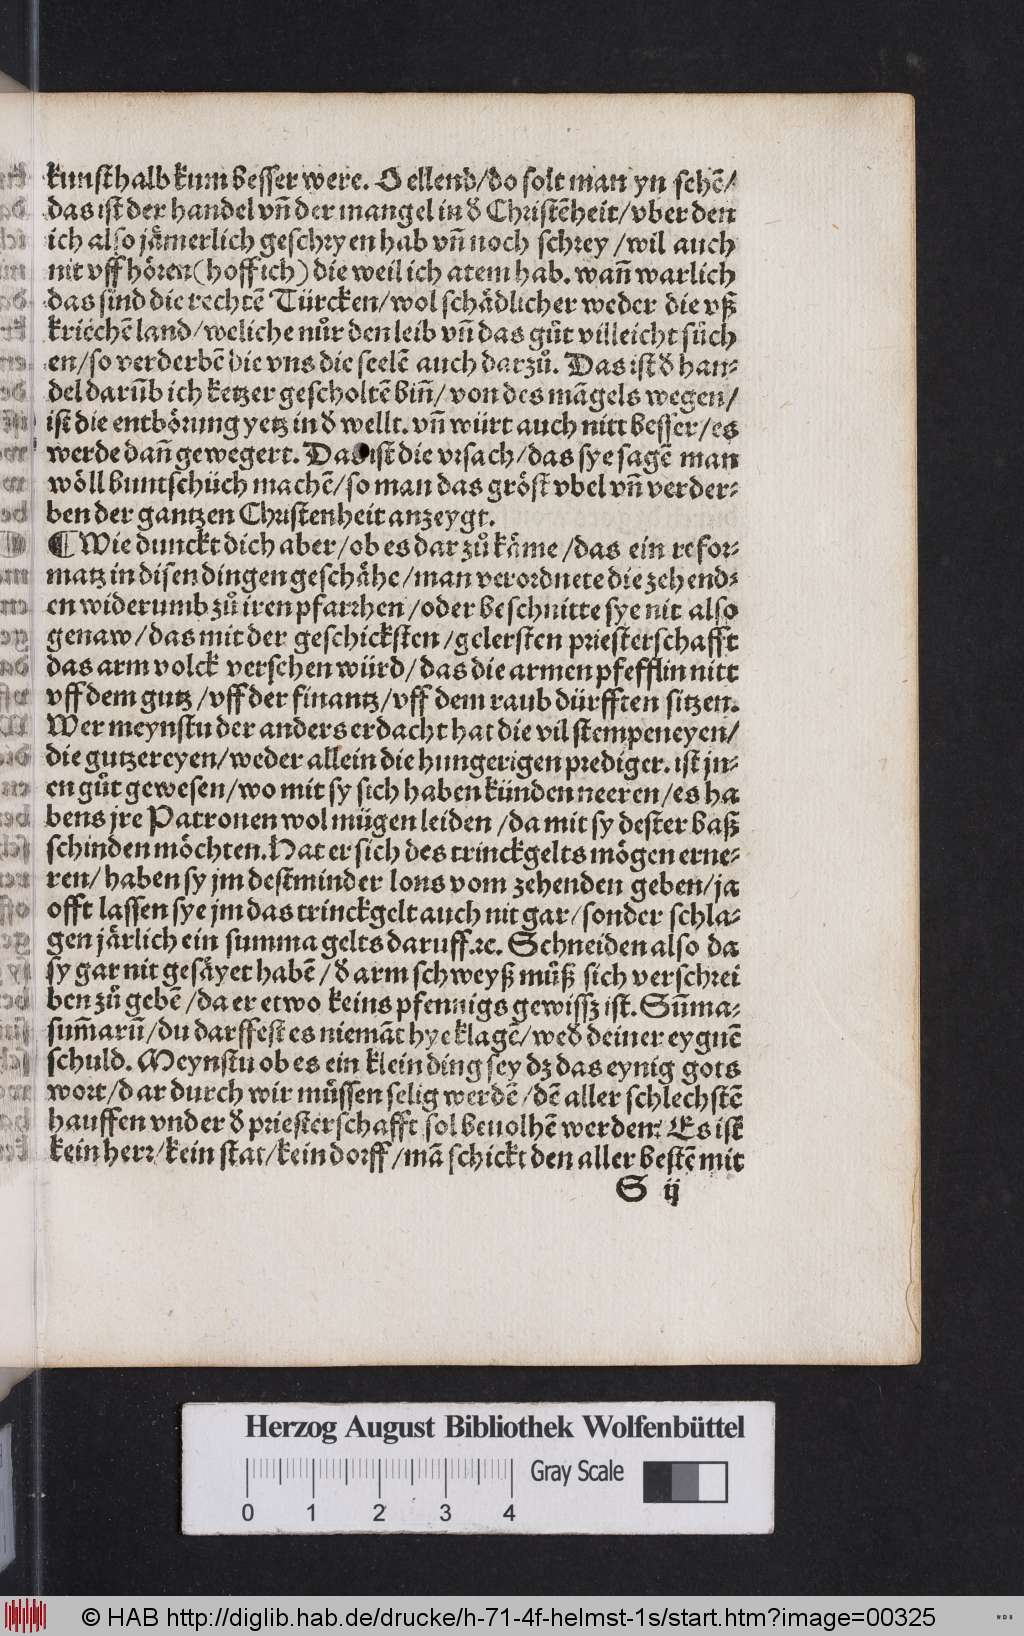 kunsthalb kum besser were. O ellend/do solt man yn sehē/
das ist der handel vn̄ der mangel in d̕ Christēheit/vber den
ich also jämerlich geschryen hab vn̄ noch schrey/wil auch
nit vff hören(hoff ich) die weil ich atem hab. wan̄ warlich
das sind die rechtē Türcken/wol schädlicher weder die vß
kriechē land/weliche nůr den leib vn̄ das gůt villeicht sůch
en/so verderbē die vns die seelē auch darzů. Das ist d̕ han⸗
del darūb ich ketzer gescholtē bin̄/von des māgels wegen/
ist die entbörung yetz in d̕ wellt. vn̄ würt auch nitt besser/es
werde dan̄ gewegert. Das ist die vrsach/das sye sagē man
wöll buntschůch machē/so man das gröst vbel vn̄ verder⸗
ben der gantzen Christenheit anzeygt.
¶ Wie dunckt dich aber/ob es dar zů käme/das ein refor⸗
matz in disen dingen geschähe/man verordnete die zehend⸗
en widerumb zů iren pfarrhen/oder beschnitte sye nit also
genaw/das mit der geschicksten/gelersten priesterschafft
das arm volck versehen würd/das die armen pfefflin nitt
vff dem gutz/vff der finantz/vff dem raub dürfften sitzen.
Wer meynstu der anders erdacht hat die vil stempeneyen/
die gutzereyen/weder allein die hungerigen prediger. ist jn⸗
en gůt gewesen/wo mit sy sich haben künden neeren/es ha
bens jre Patronen wol mügen leiden/da mit sy dester baß
schinden möchten. Hat er sich des trinckgelts mögen erne⸗
ren/haben sy jm dest minder lons vom zehenden geben/ja
offt lassen sye jm das trinckgelt auch nit gar/sonder schla⸗
gen järlich ein summa gelts daruff.⁊c. Schneiden also da
sy gar nit gesäyet habē/d̕ arm schweyß můß sich verschrei
ben zů gebē/da er etwo keins pfennigs gewissz ist. Sūma⸗
sum̄arū/du darffest es niemāt hye klagē/wed̕ deiner eygnē
schuld. Meynstu ob es ein klein ding sey dz das eynig gots
wort/dar durch wir můssen selig werdē/dē aller schlechstē
hauffen vnder d̕ priesterschafft sol beuolhē werden? Es ist
kein herr/kein stat/kein dorff/mā schickt den aller bestē mit
S ij
Herzog August Bibliothek Wolfenbüttel
Gray Scale
0 1 2 3 4
© HAB http://diglib.hab.de/drucke/h-71-4f-helmst-1s/start.htm?image=00325